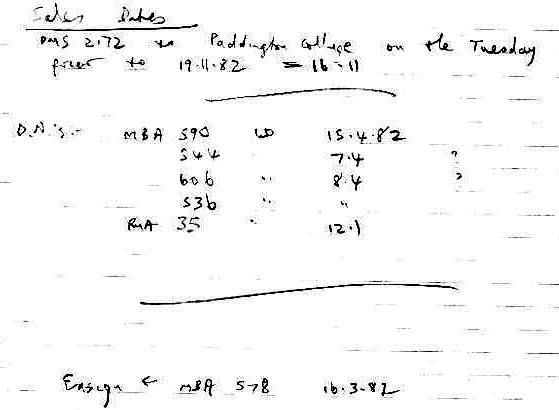 Sales Dates
DMS 2172 to Paddington College on the Tuesday
prior to 19.11.82 = 16.11
D.N.'s:- MBA 590 WD 15.4.82
544 7.4 ?
606 " 8.4 ?
536 " "
RMA 35 " 12.1
Ensign ← MBA 578 16.3.82